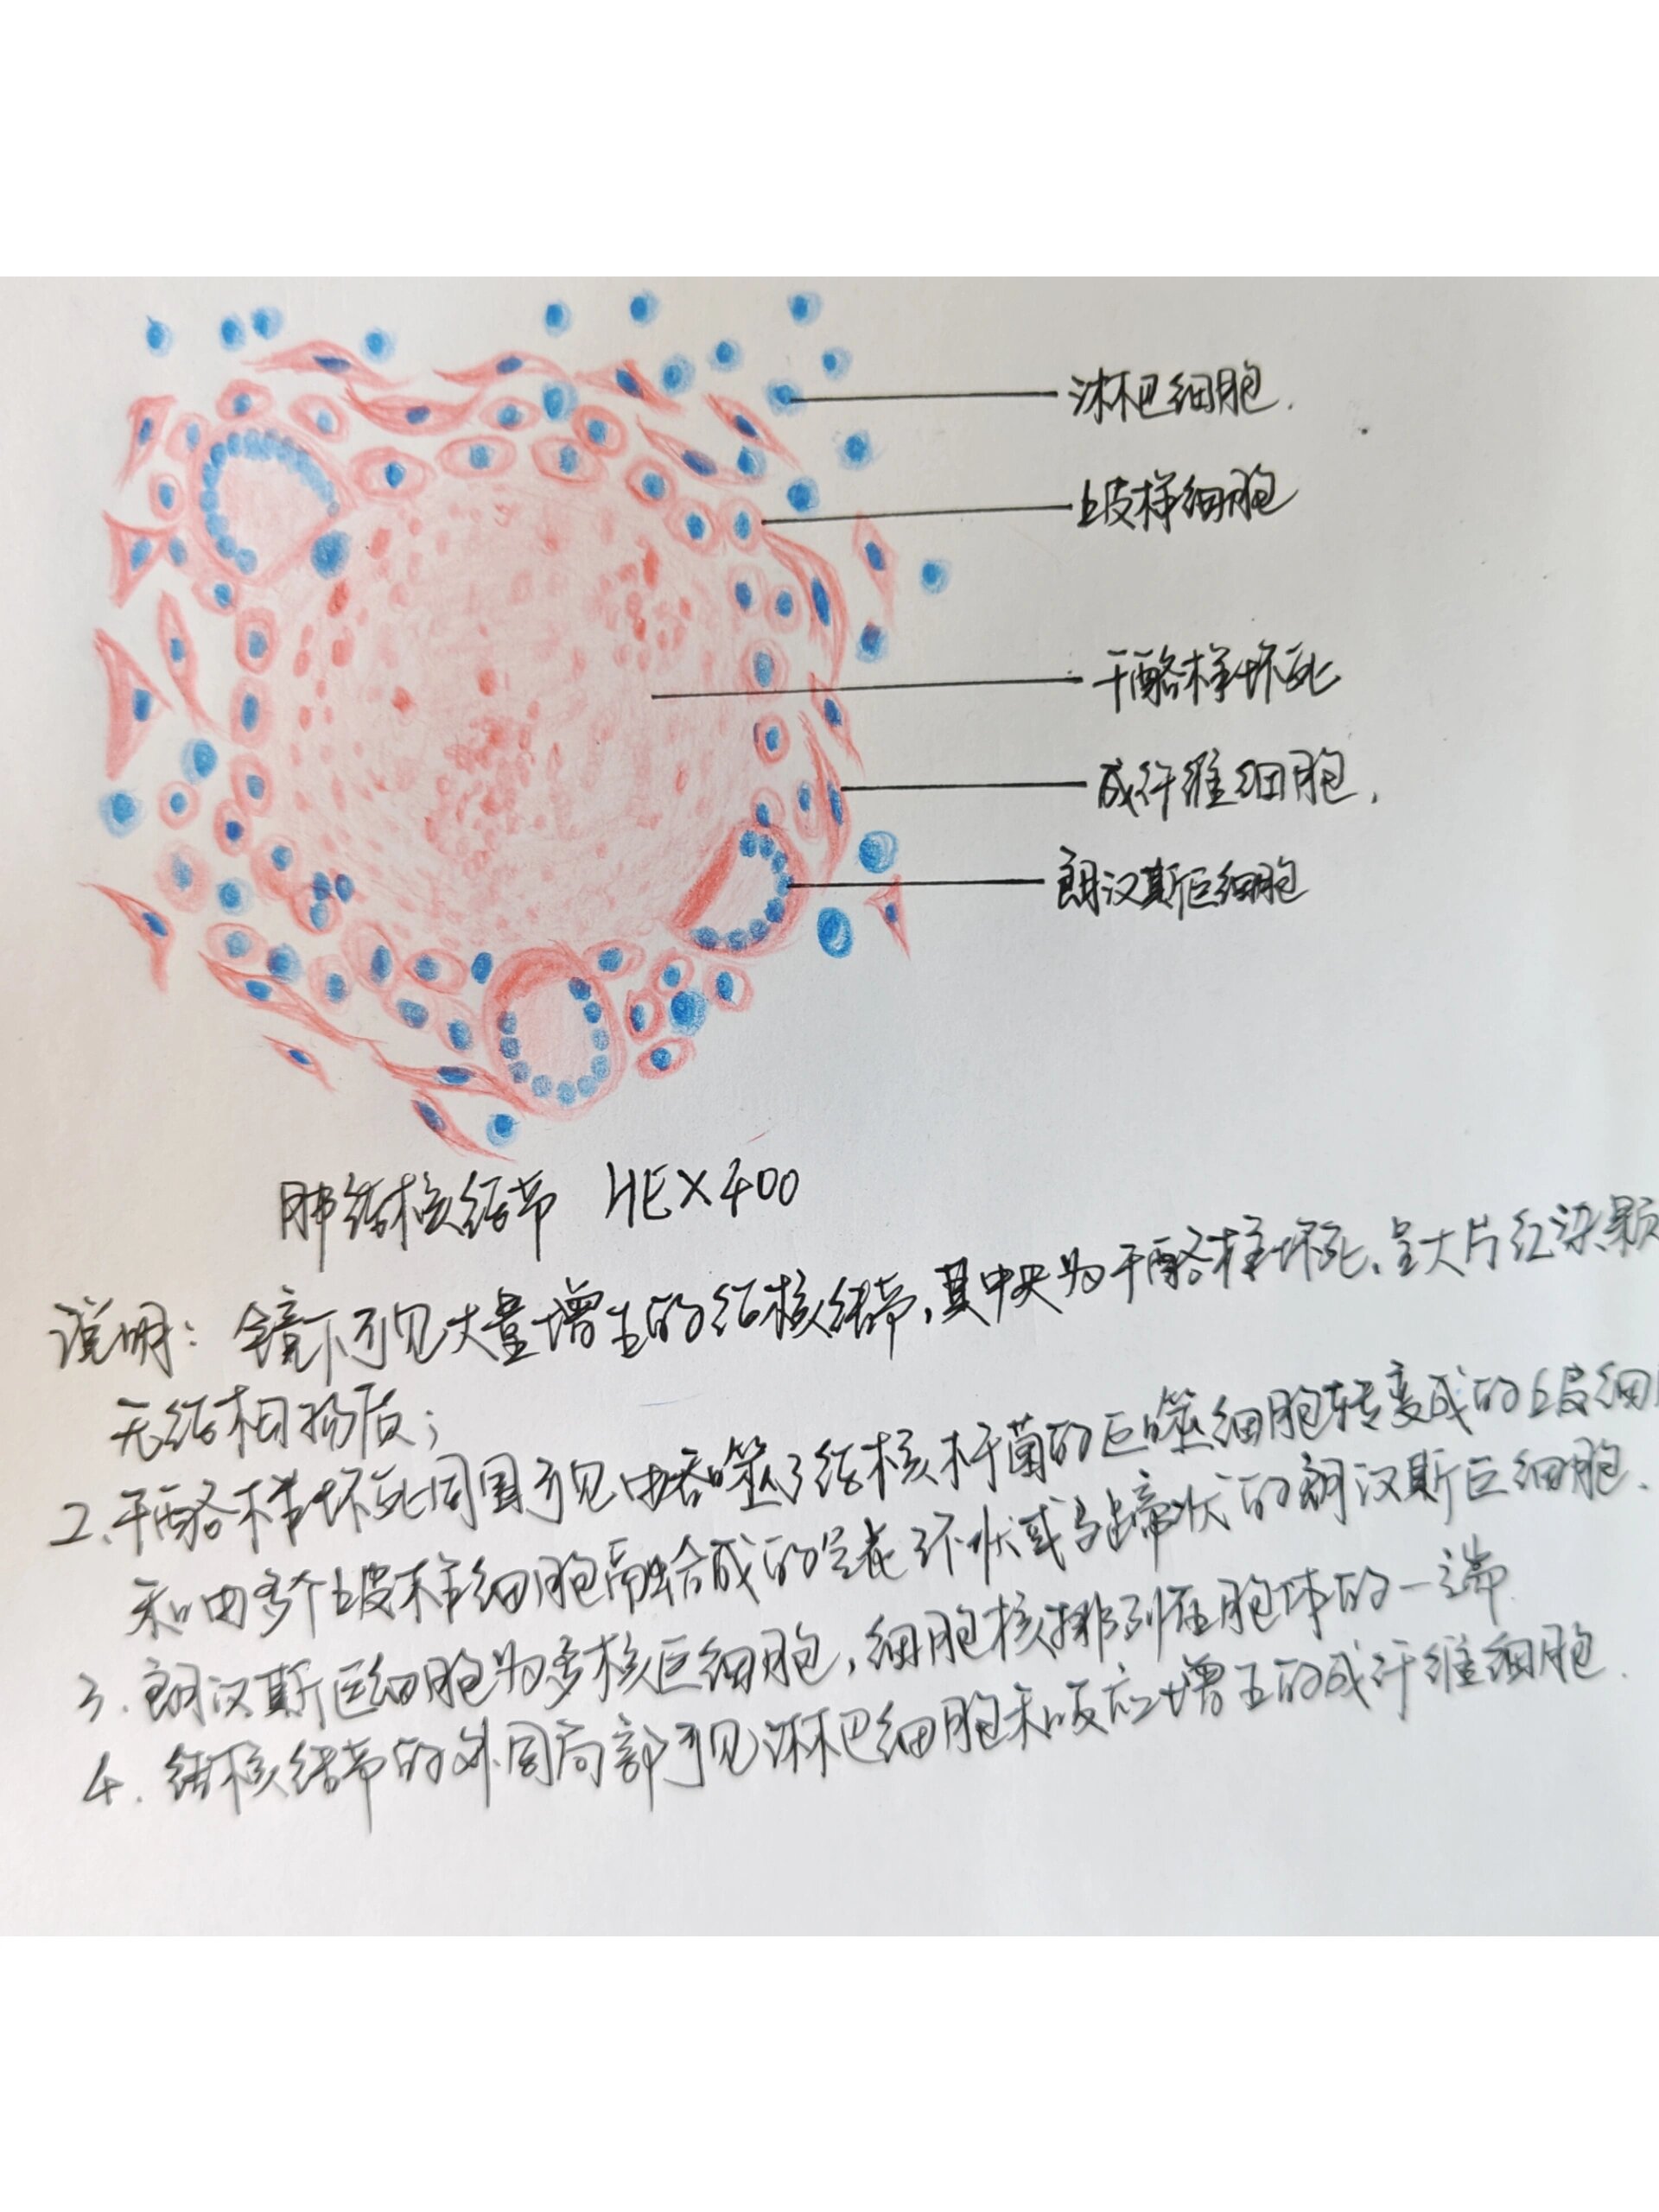 淋巴细胞.
上皮样细胞
干酪样坏死
成纤维细胞.
朗汉斯巨细胞
肺结核结节 HE×400
说明: 镜下可见大量增生的结核结节,其中央为干酪样坏死.呈大片红染颗
无结构物质;
2.干酪样坏死周围可见由吞噬了结核杆菌的巨噬细胞转变成的上皮细
和由多个上皮样细胞融合成的呈花环状或马蹄状的朗汉斯巨细胞.
3.朗汉斯巨细胞为多核巨细胞,细胞核排列在胞体的一端.
4.结核结节的外周局部可见淋巴细胞和反应增生的成纤维细胞.